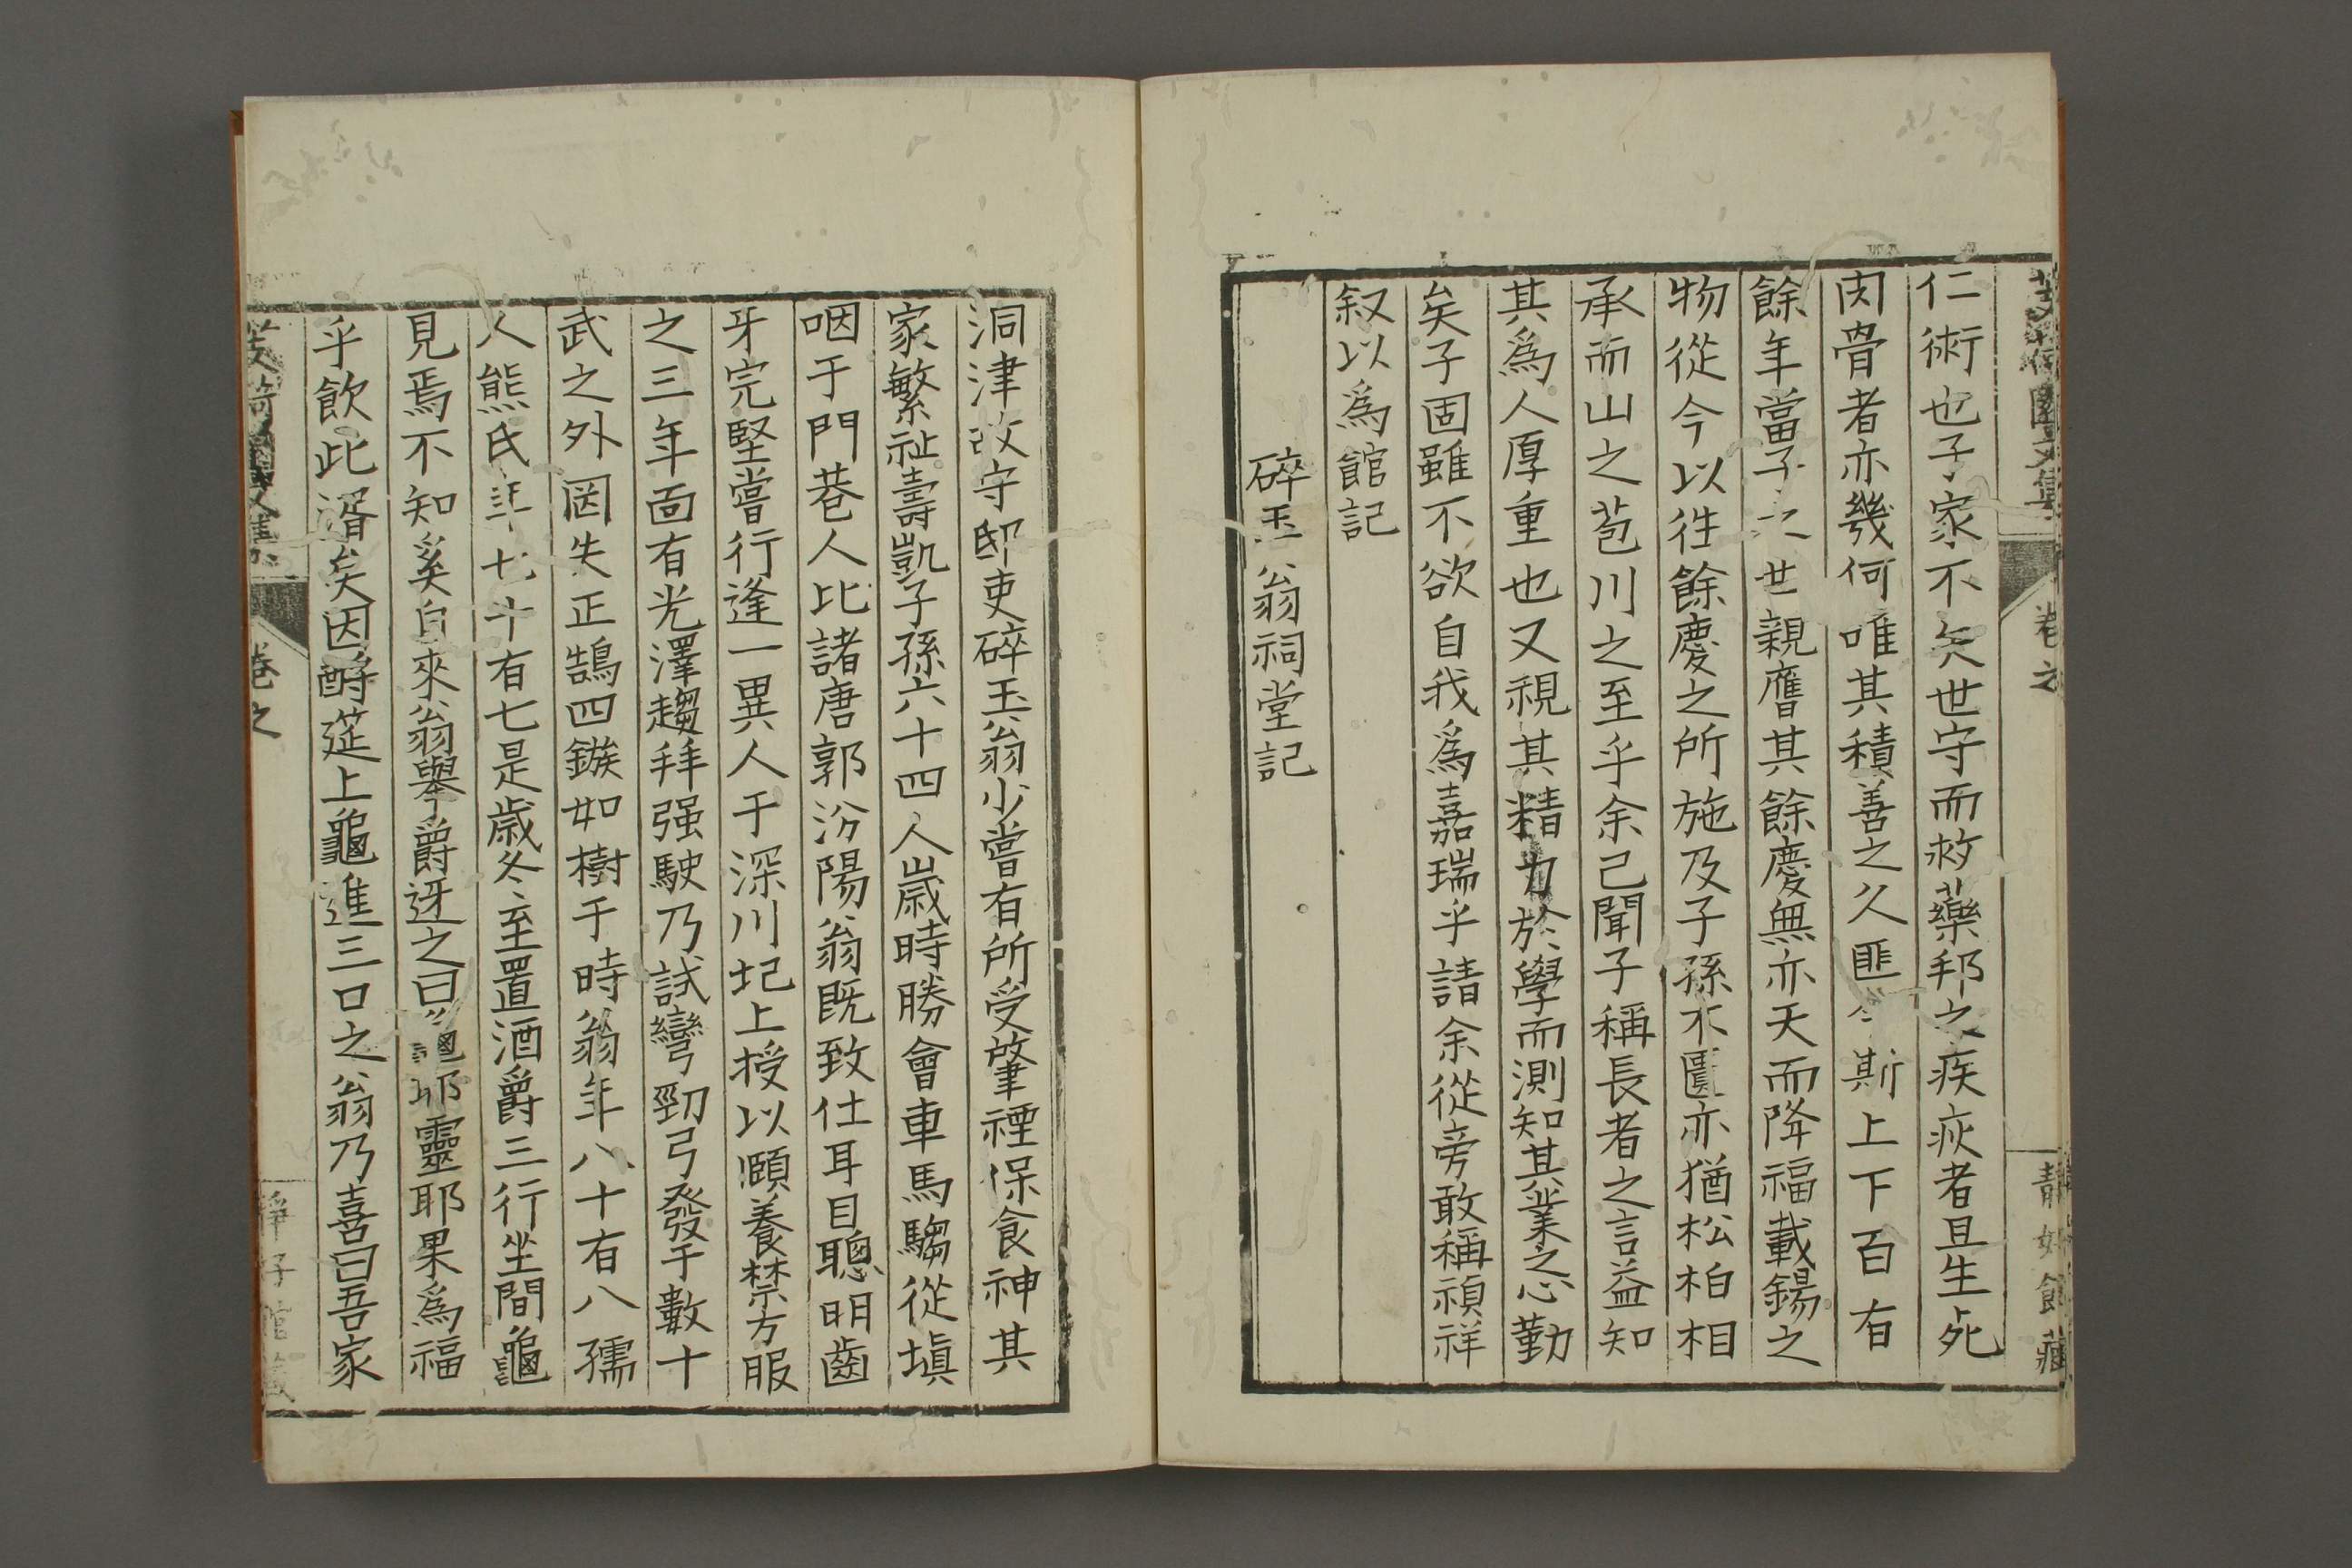 仁術也子家不失世守而救藥邦之疾疢者且生死
肉骨者亦幾何唯其積善之久匪今斯上下百有
餘年當子之世親膺其餘慶無亦天而降福載錫之
物從今以徃餘慶之所施及子孫不匱亦猶松柏相
承而山之苞川之至乎余已聞子稱長者之言益知
其爲人厚重也又視其精力於學而測知其業之心勤
矣子固雖不欲自我爲嘉瑞乎請余從旁敢稱禎祥
叙以爲館記
碎玉翁祠堂記
洞津故守邸吏碎玉翁少嘗有所受肇禋保食神其
家繁祉壽凱子孫六十四人歲時勝會車馬騶從塡
咽于門巷人比諸唐郭汾陽翁既致仕耳目聰明齒
牙完堅嘗行逢一異人于深川圯上授以頤養禁方服
之三年面有光澤趨拜强駛乃試彎勁弓發于數十
武之外罔失正鵠四鏃如樹于時翁年八十有八孺
人熊氏年七十有七是歲冬至置酒爵三行坐間龜
見焉不知奚自來翁擧爵迓之曰龜耶靈耶果爲福
乎飲此湑矣因酹筵上龜進三口之翁乃喜曰吾家
卷之
靜好館藏